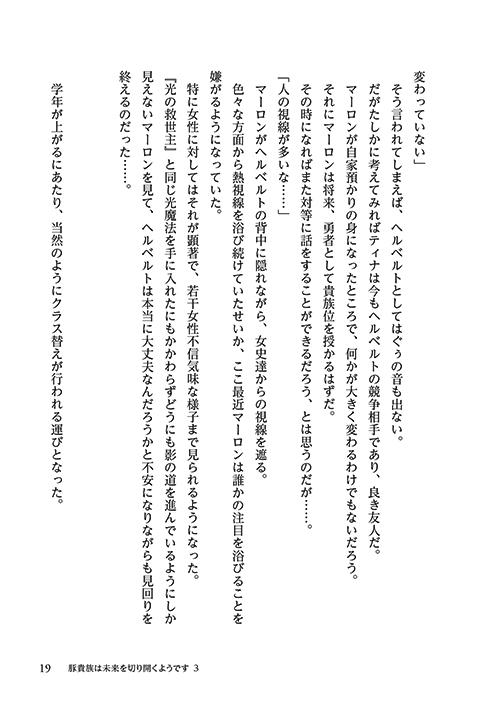 変わっていない」
　そう言われてしまえば、ヘルベルトとしてはぐぅの音も出ない。
　だがたしかに考えてみればティナは今もヘルベルトの競争相手であり、良き友人だ。
　マーロンが自家預かりの身になったところで、何かが大きく変わるわけでもないだろう。
　それにマーロンは将来、勇者として貴族位を授かるはずだ。
　その時になればまた対等に話をすることができるだろう、とは思うのだが……。
「人の視線が多いな……」
　マーロンがヘルベルトの背中に隠れながら、女史達からの視線を遮る。
　色々な方面から熱視線を浴び続けていたせいか、ここ最近マーロンは誰かの注目を浴びることを
嫌がるようになっていた。
　特に女性に対してはそれが顕著で、若干女性不信気味な様子まで見られるようになった。
『光の救世主』と同じ光魔法を手に入れたにもかかわらずどうにも影の道を進んでいるようにしか
見えないマーロンを見て、ヘルベルトは本当に大丈夫なんだろうかと不安になりながらも見回りを
終えるのだった……。
　学年が上がるにあたり、当然のようにクラス替えが行われる運びとなった。
19　豚貴族は未来を切り開くようです 3